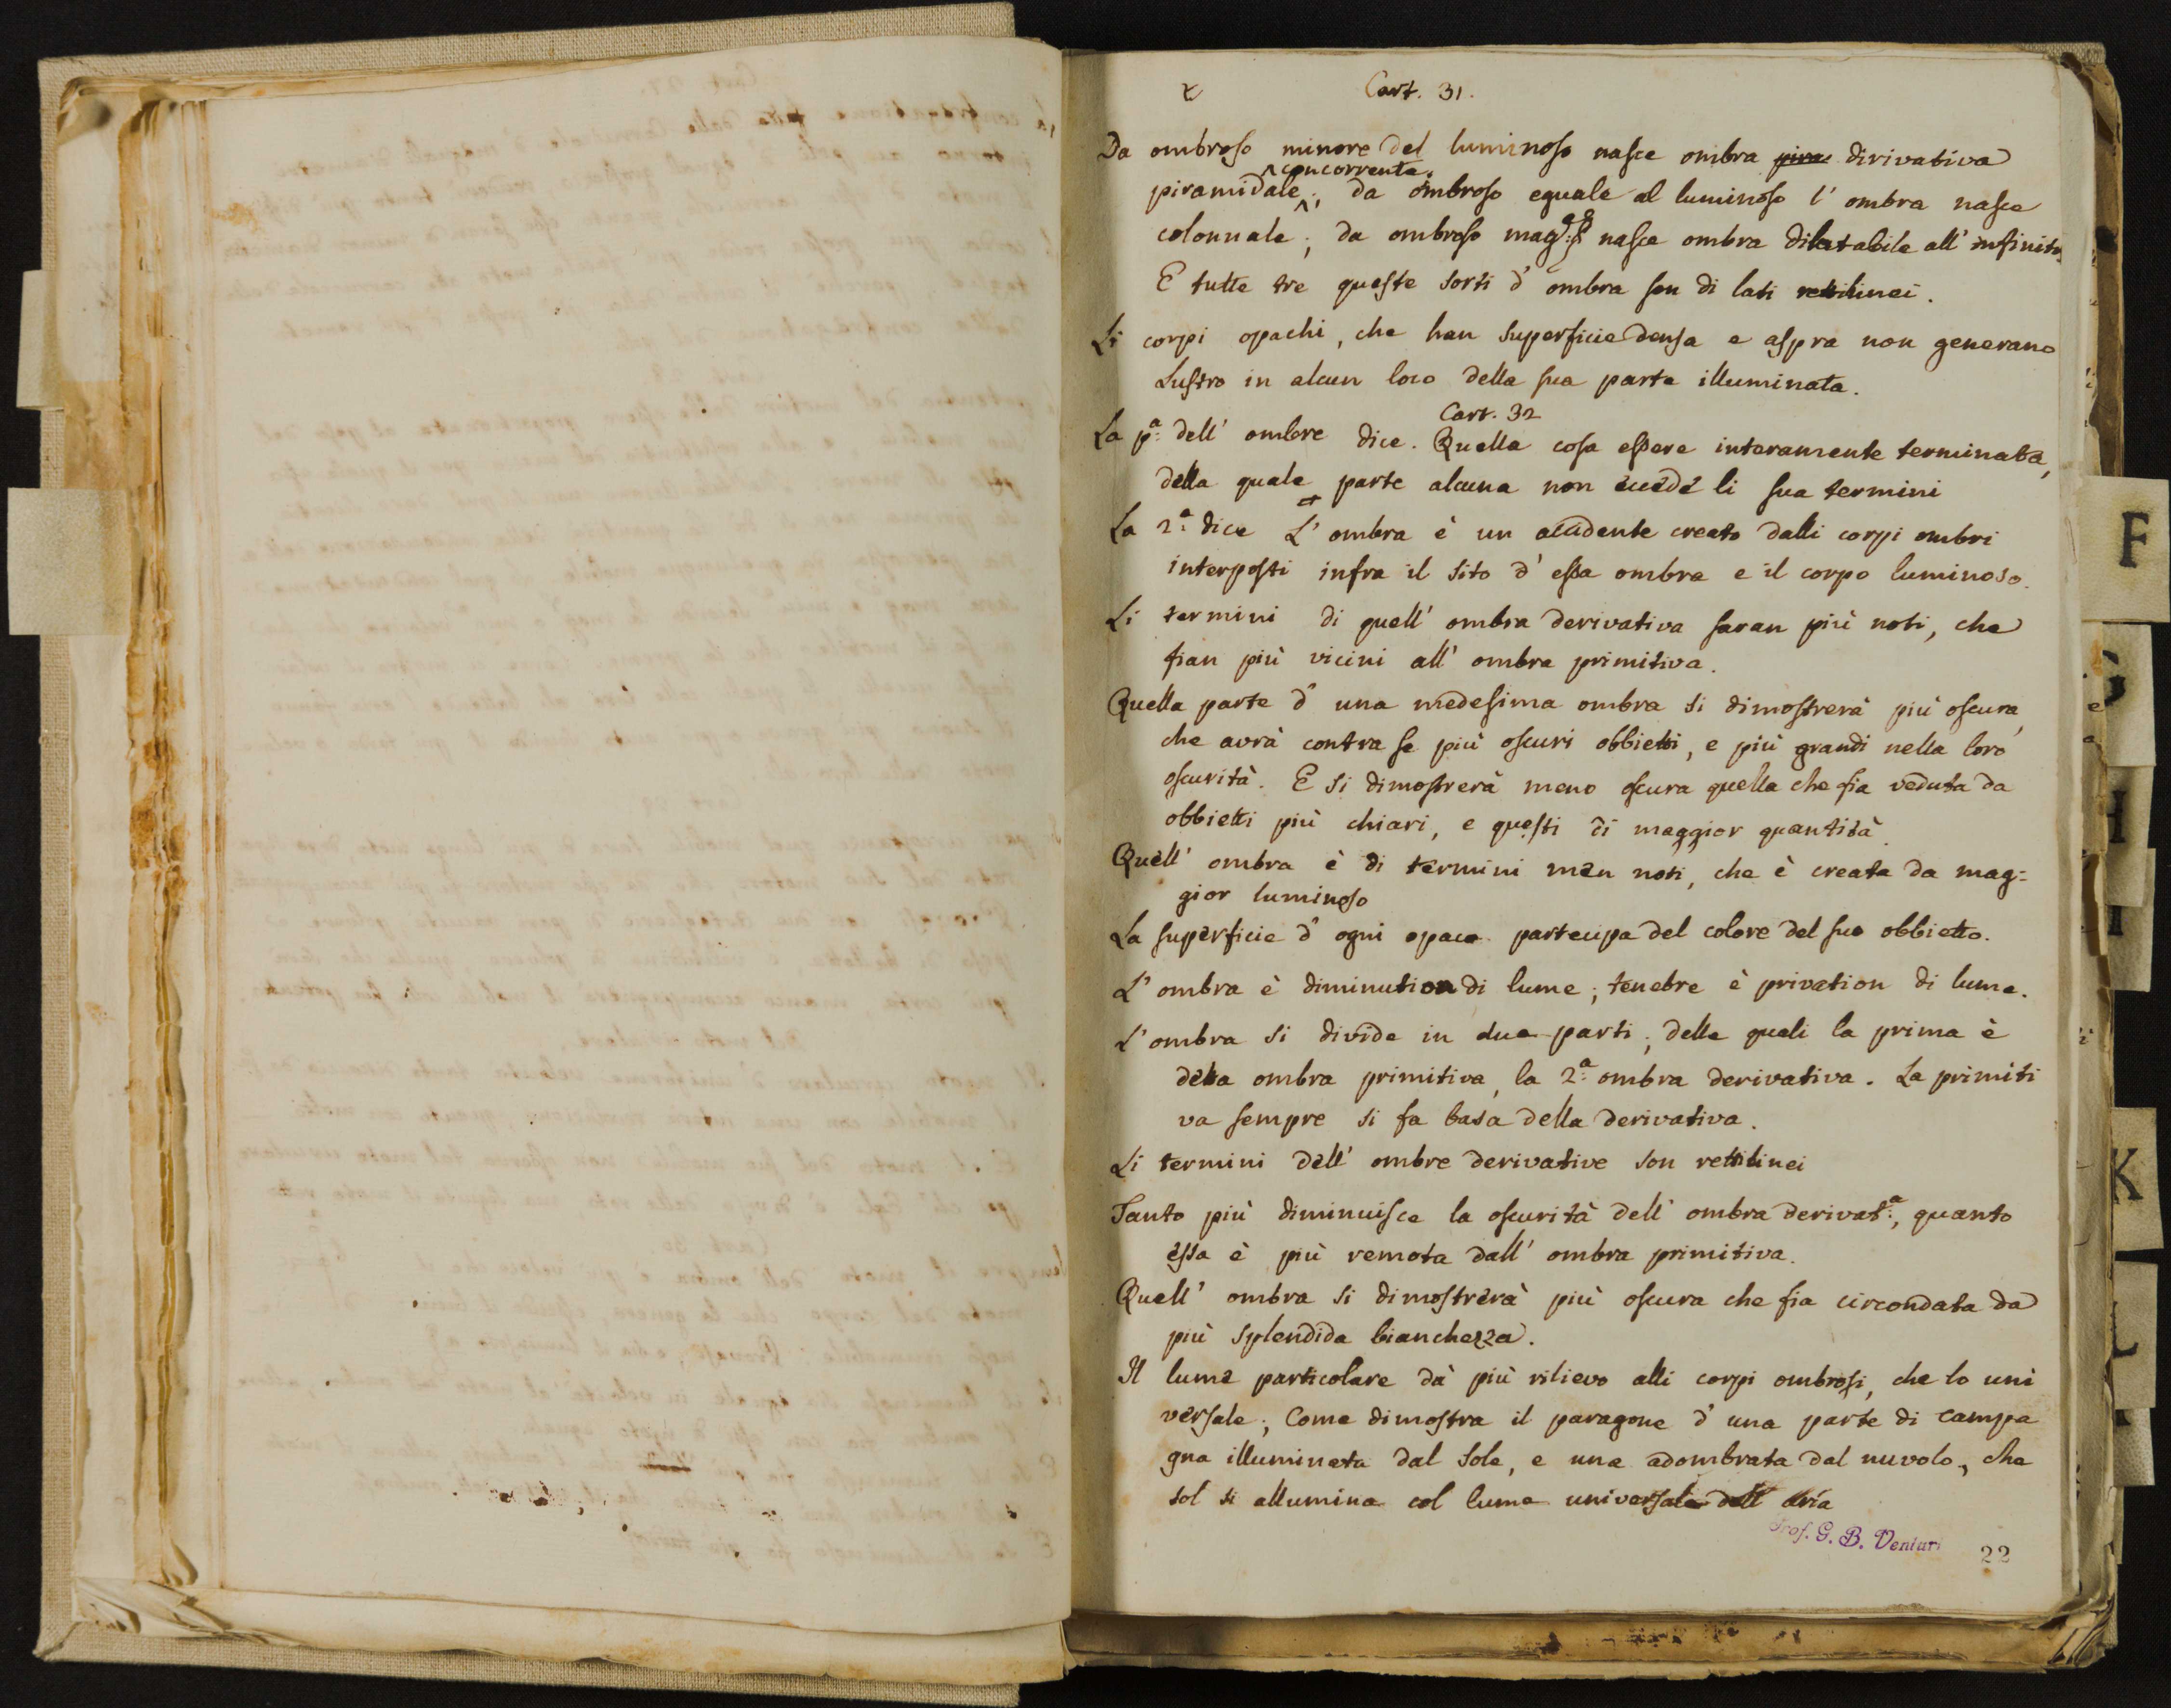 Cart. 31.
Da ombroso minore del luminoso nasce ombra pira dirivativa
concorrente.
piramidale; da ombroso eguale al luminoso l' ombra nasce
colonnale; da ombroso mag:e nasce ombra dilatabile all' infinito.
E tutte tre queste sorti d' ombra son di lati rettilinei.
Li corpi opachi, che han superficie densa e aspra non generano
Lustro in alcun loco della sua parte illuminata.
Cart. 32
La p:a dell' ombre dice. Quella cosa essere interamente terminata,
della quale parte alcuna non eccede li sua termini
La 2:a dice L' ombra è un accidente creato dalli corpi ombri
interposti infra il sito d' essa ombra e il corpo luminoso.
Li termini di quell' ombra derivativa saran più noti, che
fian più vicini all' ombra primitiva.
Quella parte d' una medesima ombra si dimostrerà più oscura,
che avrà contra se più oscuri obbietti, e più grandi nella loro
oscurità. E si dimostrerà meno oscura quella che fia veduta da
obbietti più chiari, e questi di maggior quantità.
Quell' ombra è di termini men noti, che è creata da mag=
gior luminoso
La superficie d' ogni opaco partecipa del colore del suo obbietto.
L' ombra è diminution di lume; tenebre è privation di lume.
L' ombra si divide in due parti; delle quali la prima è
detta ombra primitiva, la 2:a ombra derivativa. La primiti
va sempre si fa basa della derivativa.
Li termini dell' ombre derivative son rettilinei
Tanto più diminuisce la oscurità dell' ombra derivat:a, quanto
essa è più remota dall' ombra primitiva.
Quell' ombra si dimostrerà più oscura che fia circondata da
più splendida bianchezza.
Il lume particolare dà più rilievo alli corpi ombrosi, che lo uni
versale; Come dimostra il paragone d' una parte di campa
gna illuminata dal sole, e una adombrata dal nuvolo, che
sol si allumina col lume universale dell' aria
Prof. G. B. Venturi
22
F
H
I
K
L